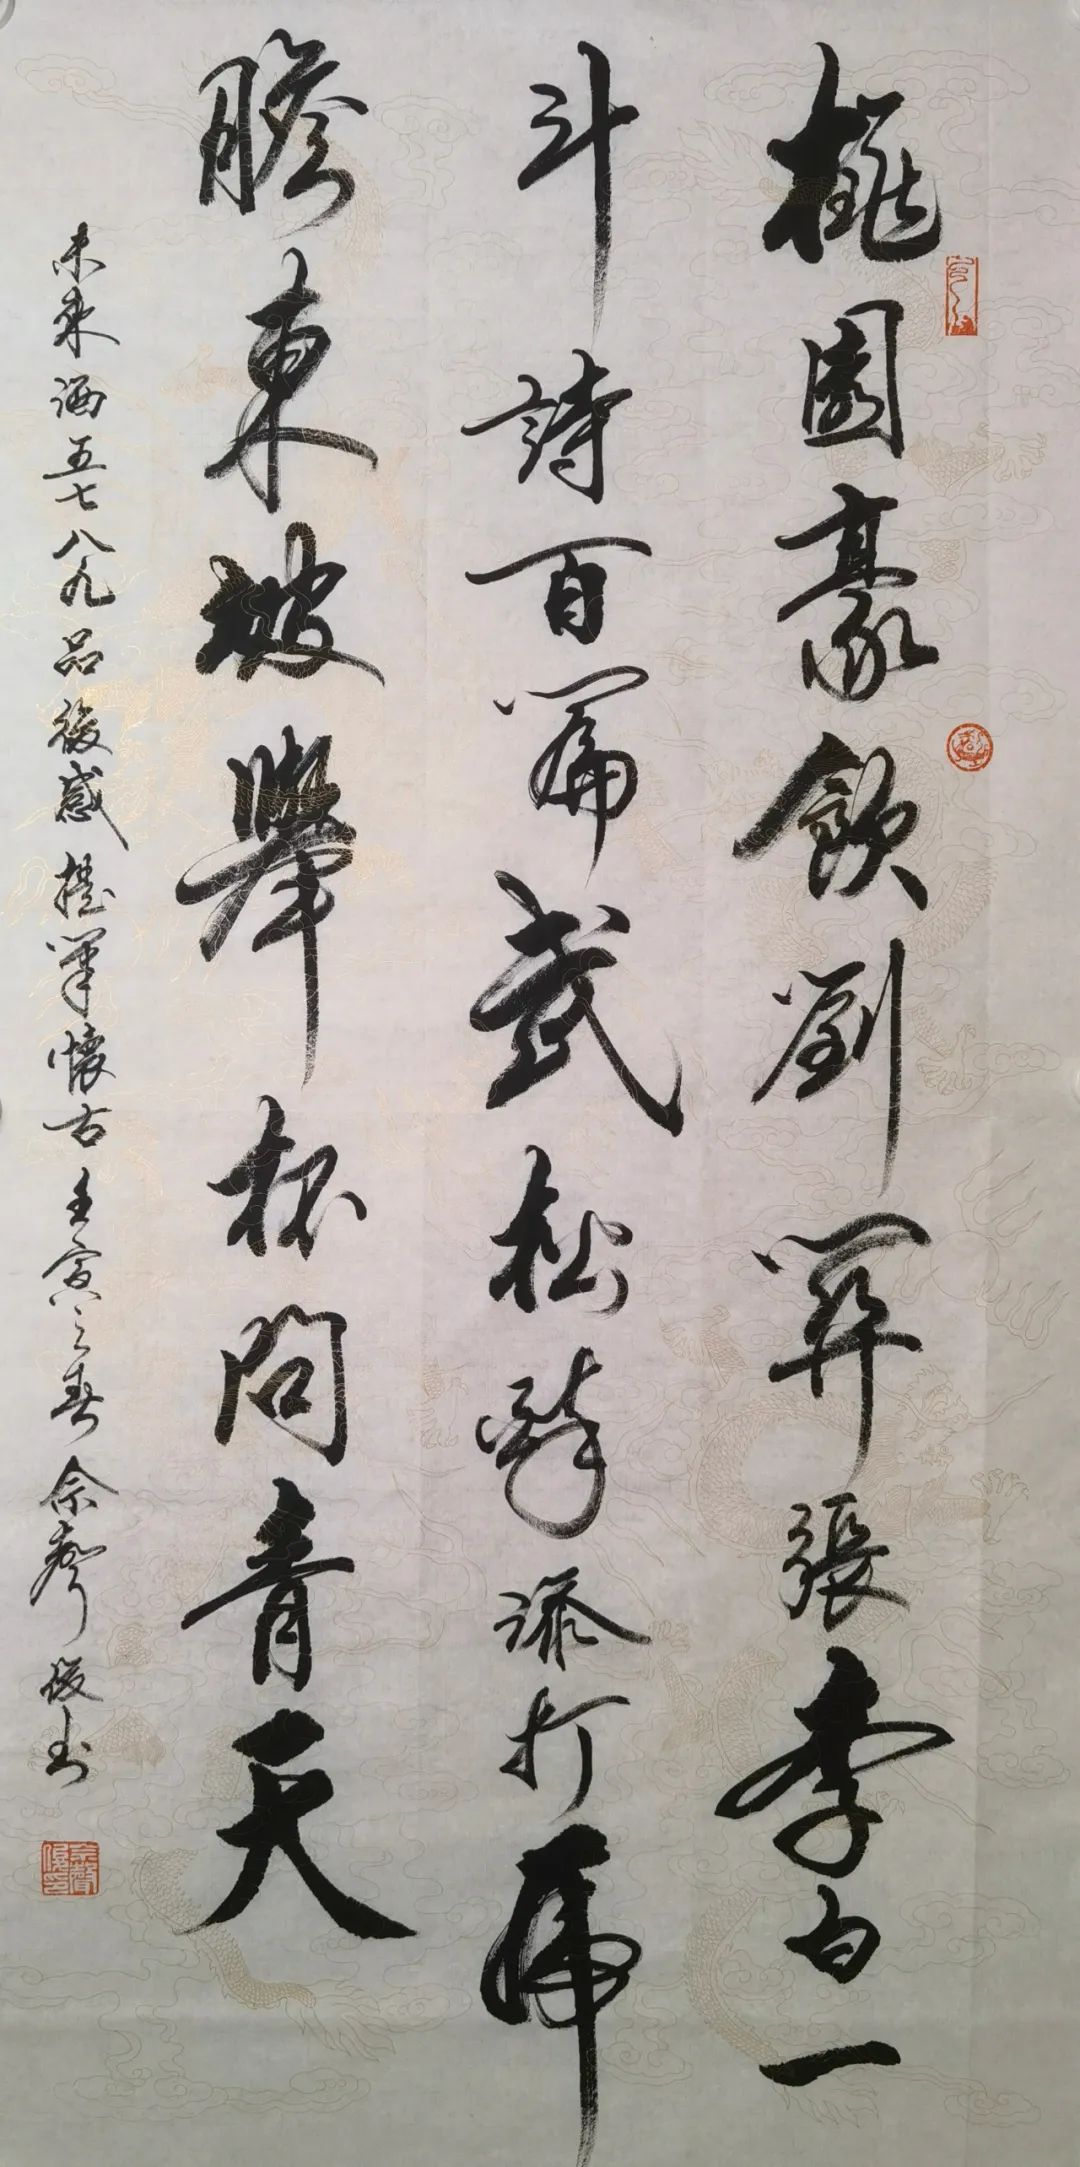 桃園豪飲劉關張李白一
斗詩百篇武松醉添打虎
膽東坡舉杯問青天
未來酒五七八九品後感提筆懷古壬寅之春佘聲俊书